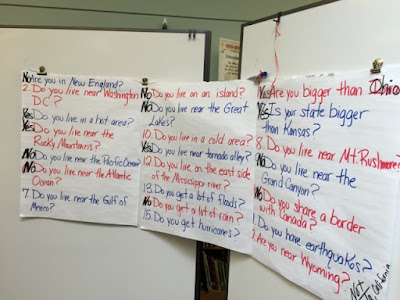 No Are you in New England?
2. Do you live near Washington
DC?
Yes Do you live in a hot area?
Yes Do you live near the
Rocky Mountains?
No Do you live near the Pacific Ocean?
No Do you live near the Atlantic
Ocean?
7. Do you live near the Gulf of
Mexico?
No Do you live on an island?
No Do you live near the Great
Lakes?
10. Do you live in a cold area?
Yes Do you live near tornado alley?
12. Do you live on the east side
of the Mississippi river?
13. Do you get a lot of floods?
No Do you get a lot of rain?
15. Do you get hurricanes?
Yes Are you bigger than Ohio
Yes Is your state bigger
than Kansas?
8. Do you live near Mt. Rushmore?
No Do you live near the
Grand Canyon?
No Do you share a border
with Canada?
Do you have earthquakes?
Are you near Wyoming?
Not
California